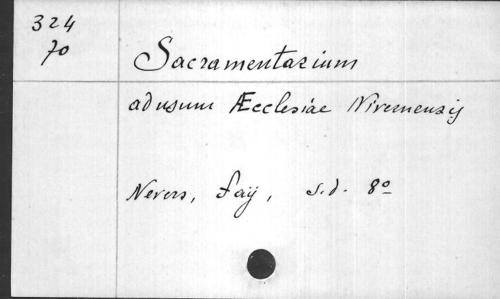 324
70
Sacramentarium
adusum Æcclesiae Nivernensis
Nevers, Faÿ, s.d. 8º